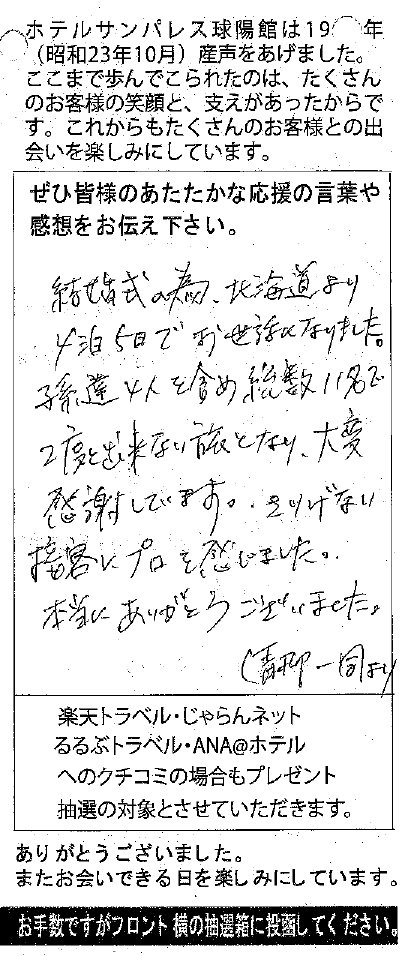 ホテルサンパレス球陽館は19 年
（昭和23年10月）産声をあげました。
ここまで歩んでこられたのは、たくさん
のお客様の笑顔と、支えがあったからで
す。これからもたくさんのお客様との出
会いを楽しみにしています。
ぜひ皆様のあたたかな応援の言葉や
感想をお伝え下さい。
結婚式の為、北海道より
4泊5日でお世話になりました。
孫達4人を含め総数11名で
2度と出来ない旅となり、大変
感謝しています。さりげない
接客にプロを感じました。
本当にありがとうございました。
(青柳一同より
楽天トラベル・じゃらんネット
るるぶトラベル・ANA@ホテル
へのクチコミの場合もプレゼント
抽選の対象とさせていただきます。
ありがとうございました。
またお会いできる日を楽しみにしています。
お手数ですがフロント横の抽選箱に投函してください。